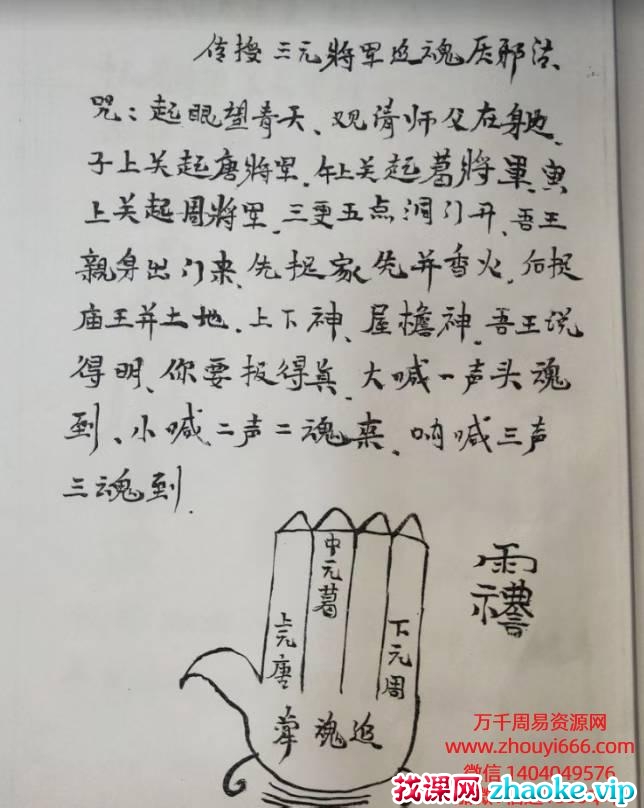 传授三元將军追魂压邪法、
咒：起眼望青天、观请师父在身边、
子上关起唐將军、午上关起葛將軍、寅
上关起周將军、三更五点洞门开、吾王
親身出门来、先捉家先并香火、后捉
庙王并土地、上下神、屋檐神、吾王说
得明、你要报得真、大喊一声头魂
到、小喊二声二魂来、呐喊三声
三魂到
中元葛
上元唐
下元周
牽魂追
万千周易资源网
www.zhouyi666.com
微信 1404049576
找课网 zhaoke.vip